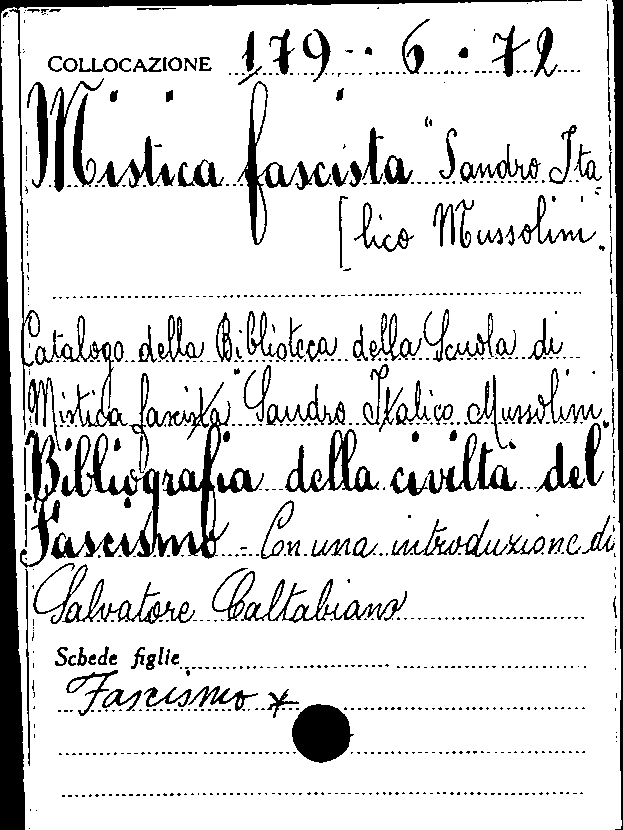 COLLOCAZIONE 179 . 6 . 72
Mistica fascista "Sandro Ita=
[lico Mussolini.
Catalogo della Biblioteca della Scuola di
Mistica fascista "Sandro Italico Mussolini.
Bibliografia della civiltà del
Fascismo - Con una introduzione di
Salvatore Caltabiano
Schede figlie
Fascismo *